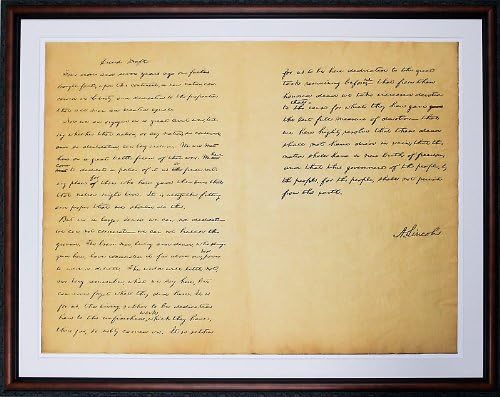 Second Draft
Four score and seven years ago our fathers
brought forth, upon this continent, a new nation, con-
ceived in liberty, and dedicated to the proposition
that all men are created equal.
Now we are engaged in a great civil war, test-
ing whether that nation, or any nation so conceived
and so dedicated can long endure. We are met
here on a great battle field of that war. We are
to dedicate a portion of it as the
place of those who here gave their lives that
that nation might live. It is altogether fitting
and proper that we should do this.
But in a larger sense we can not dedicate
we can not consecrate we can not hallow this
ground. The brave men, living and dead, who
here, have consecrated it far above our power
to add or detract. The world will little note,
nor long remember what we say here, but
can never forget what they did here. It is
for us, the living, rather to be dedicated
here to the work which they have,
thus far, so nobly carried on. It is rather
for us to be here dedicated to the great
task remaining before us that from these
honored dead we take increased devotion
to that cause for which they here gave
the last full measure of devotion that
we here highly resolve that these dead
shall not have died in vain; that the
nation shall have a new birth of freedom,
and that the government of the people, by
the people, for the people, shall not perish
from the earth.
A. Lincoln.